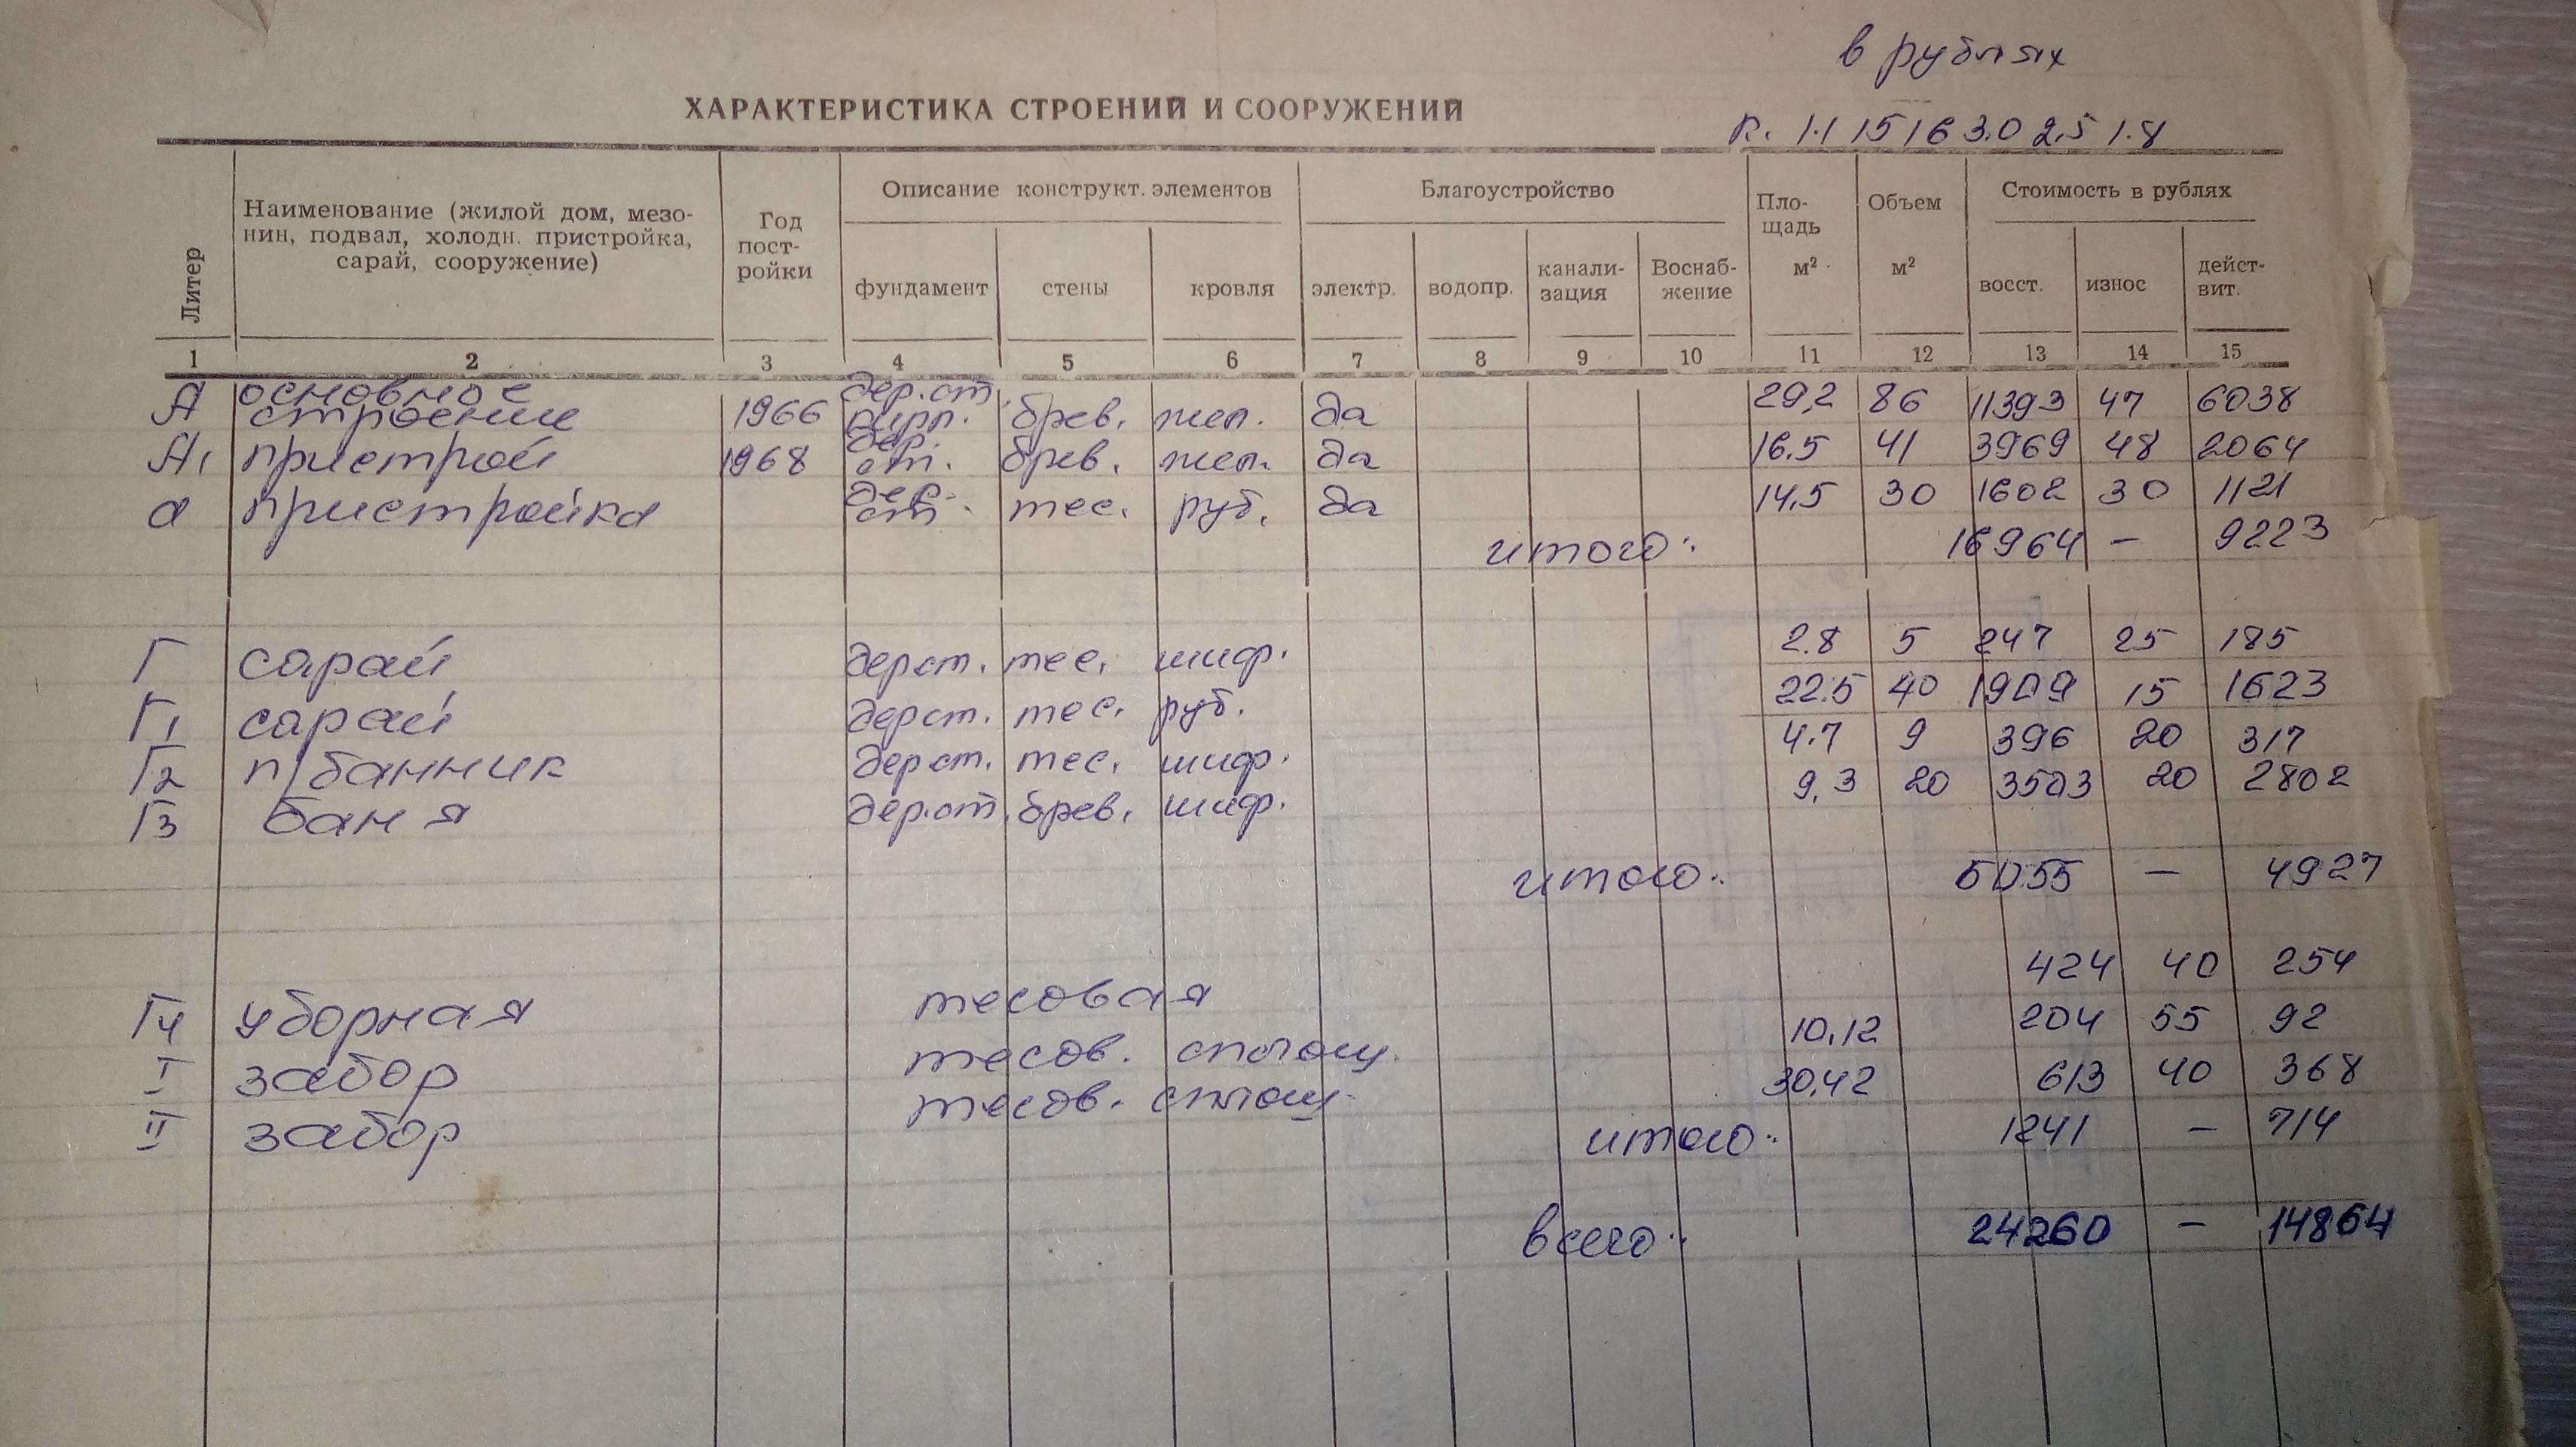 в рублях
ХАРАКТЕРИСТИКА СТРОЕНИЙ И СООРУЖЕНИЙ
к. 1.1 1.5 1.6 3.0 2.5 1.8
Литер
Наименование (жилой дом, мезо-
нин, подвал, холодн. пристройка,
сарай, сооружение)
Год
пост-
ройки
Описание конструкт. элементов
фундамент стены кровля
Благоустройство
электр. водопр. канали-
зация
Воснаб-
жение
Пло-
щадь
м²
Объем
м²
Стоимость в рублях
восст. износ дейст-
вит.
1 2 3 4 5 6 7 8 9 10 11 12 13 14 15
А основное дер. ст.
строение 1966 кирп. брев. жел. да 29,2 86 11393 47 6038
А1 пристрой 1968 дер. ст. брев. жел. да 16.5 41 3969 48 2064
а пристройка дер. ст. тес. руб. да 14,5 30 1602 30 1121
итого: 16964 — 9223
Г сарай дер ст. тес. шиф. 2.8 5 247 25 185
Г1 сарай дер ст. тес. руб. 22.5 40 1909 15 1623
Г2 п/банник дер ст. тес. шиф. 4.7 9 396 20 317
Г3 баня дер. ст. брев. шиф. 9,3 20 3503 20 2802
итого: 6055 — 4927
Г4 уборная тесовая 424 40 254
I забор тесов. сплош. 10,12 204 55 92
II забор тесов. сплош. 30,42 613 40 368
итого: 1241 — 714
всего: 24260 — 14864